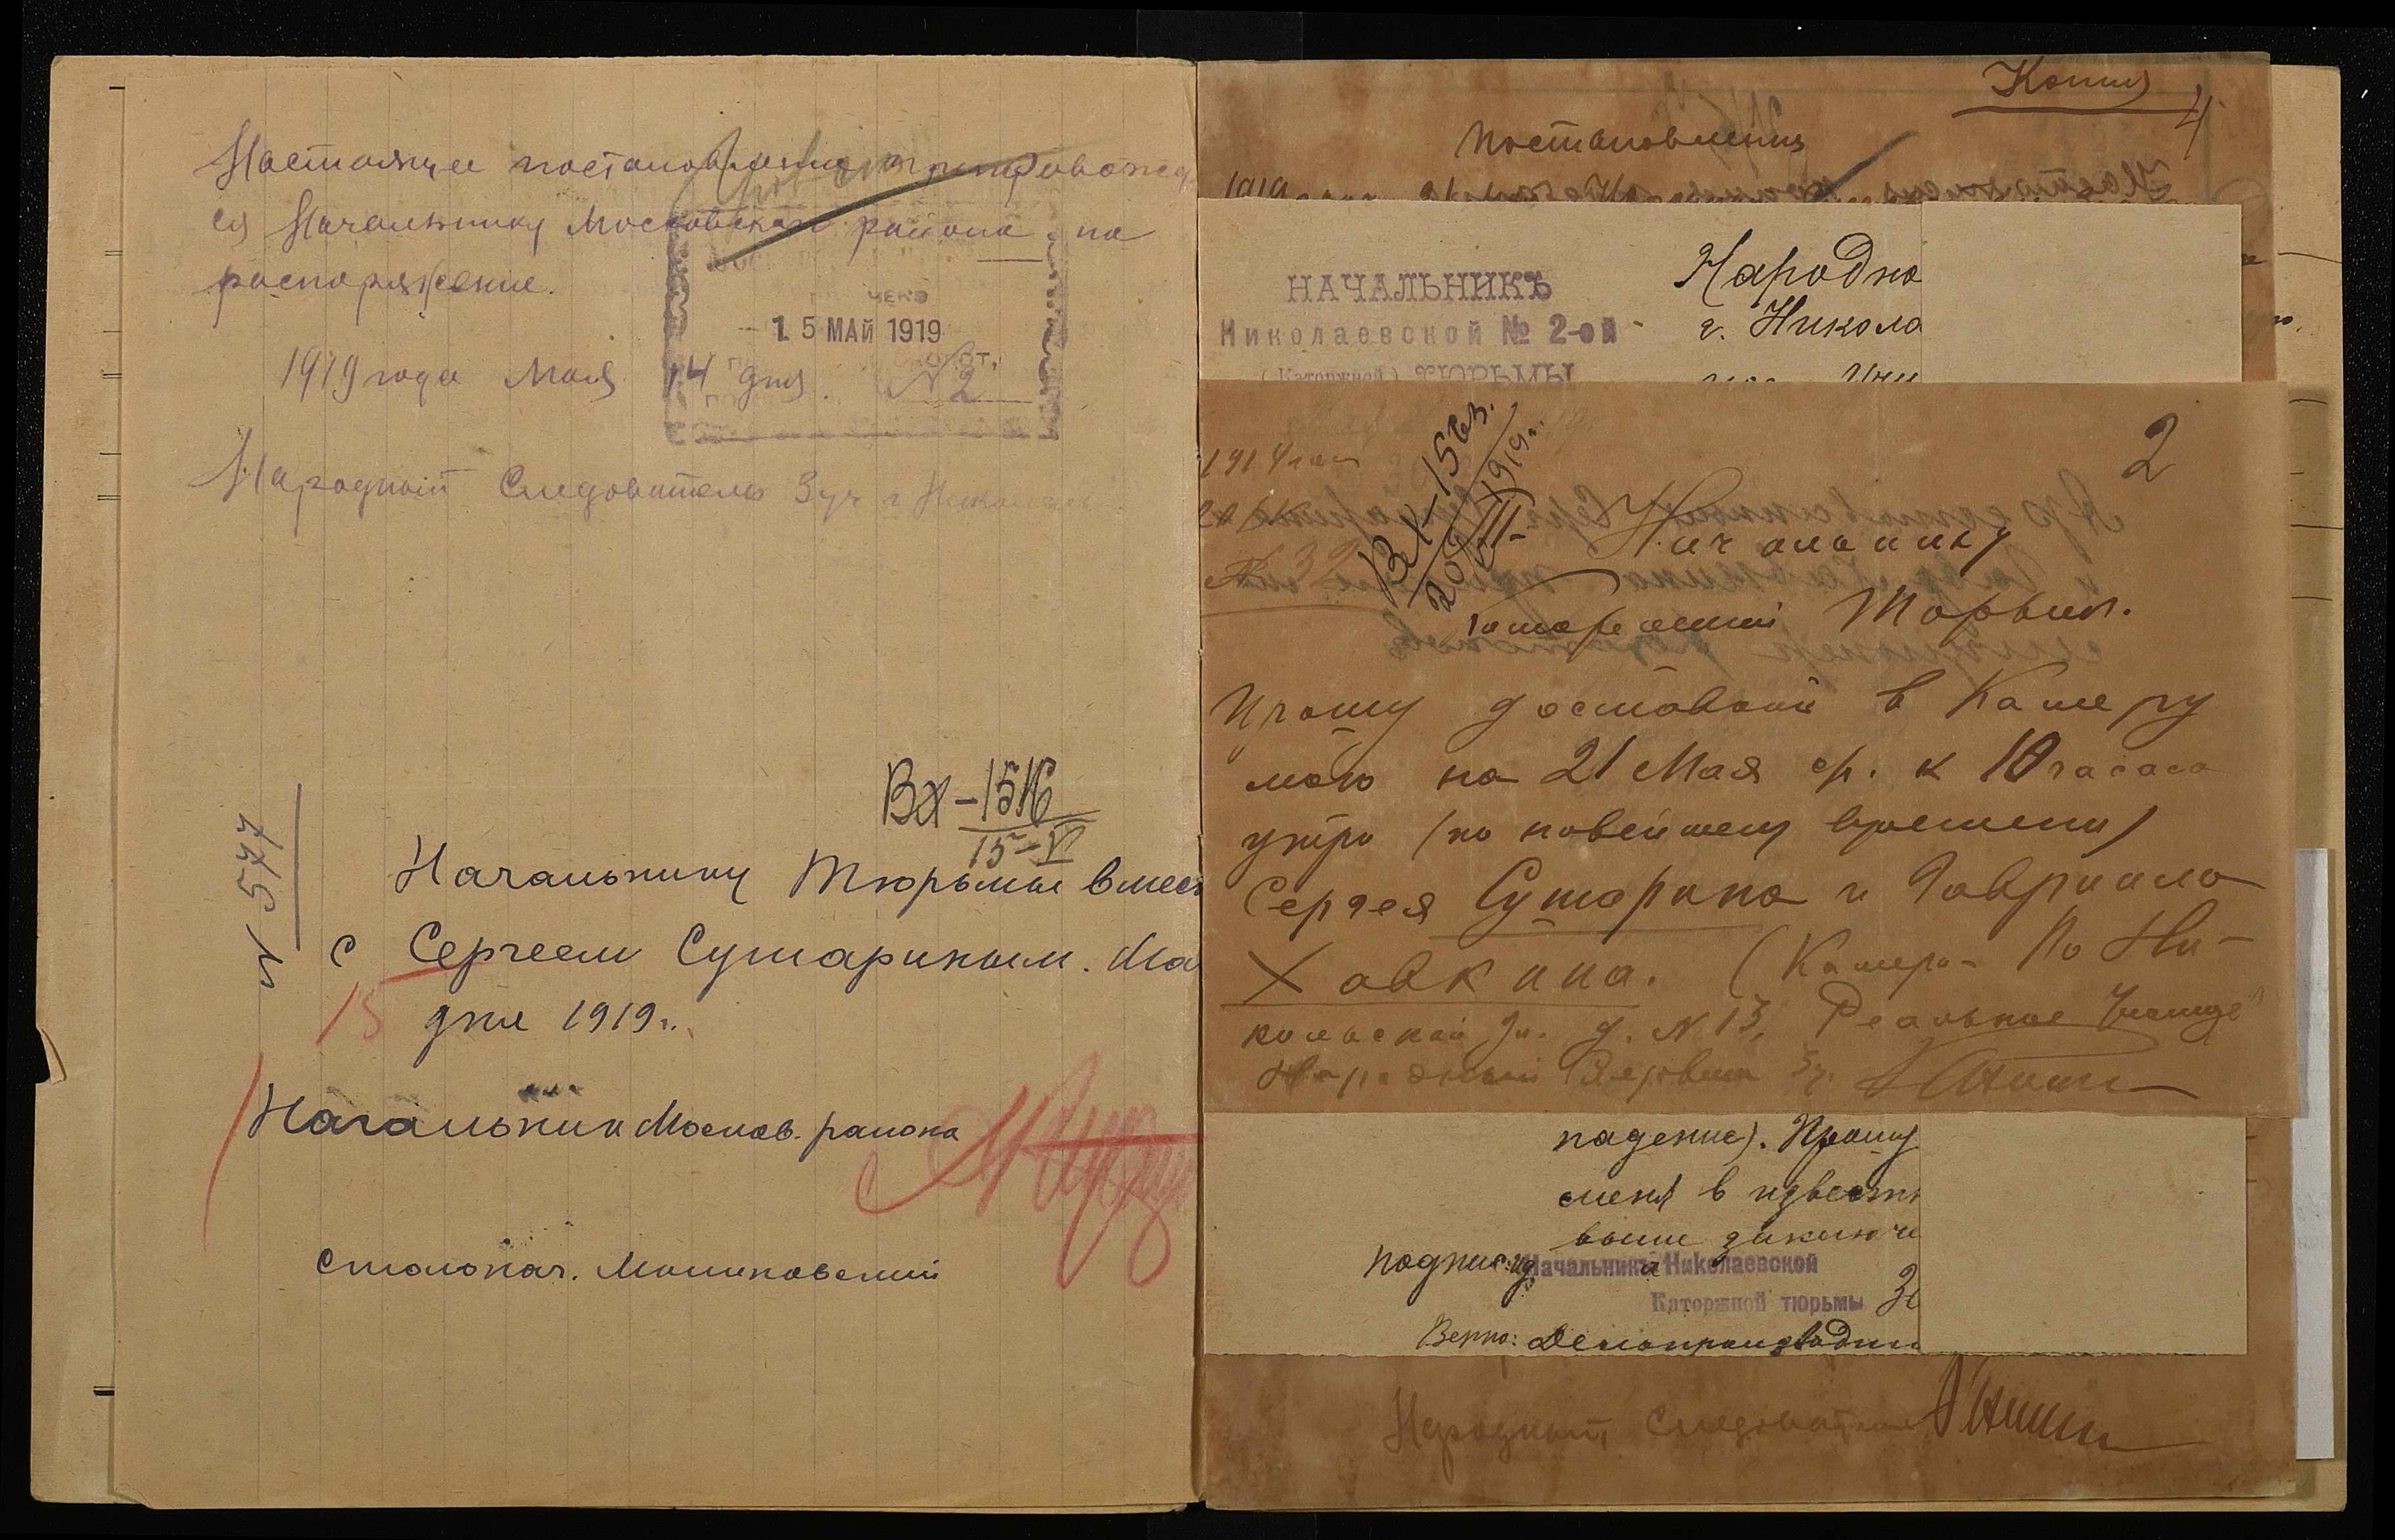 Настоящее постановление препровождает
ся Начальнику Московскаго района на
распоряжение.
15 МАЙ 1919
1919 года Мая 14 дня. № 2
Народный Следователь 3 уч г Николаев
Вх – 1516
15–V
№ 577
Начальнику Тюрьмы вмест
с Сергеем Сутариным. Ма
15 дня 1919 г.
Начальник Москов. района
Столонач.
Копия
4
Постановления
1919
НАЧАЛЬНИКЪ
Николаевской № 2-ой
(Каторжной) ТЮРЬМЫ
Народно
г. Никола
2
Вх – 15
1919 г.
№ 32
Начальнику
Каторжной Тюрьмы.
Прошу доставить в Камеру
мою на 21 Мая с/г. к 10 часам
утра (по новейшему времени)
Сергея Сутарина и Гавриила
Хавкина. (Камера – По Ни-
кольской ул. д. № 13, Реальное Училище
Народный Следователь 3 у.
падение). Прошу
меня в известн
выше заключе
подпис.
Начальника Николаевской
Каторжной тюрьмы
Верно: Делопроизводит
Народный Следователь